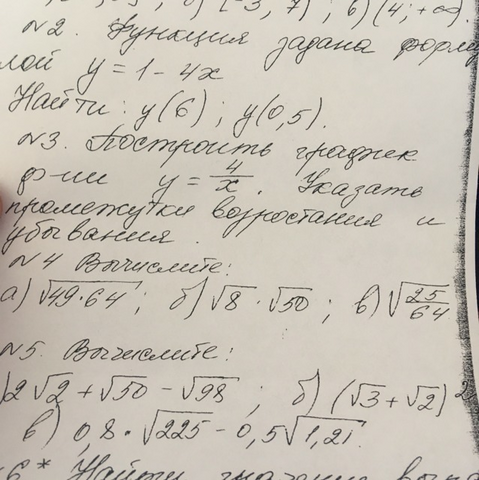 б) (-3, 7); в) (4; +∞).
№2. Функция задана форму
лой y = 1 - 4x
Найти: y(6); y(0,5).
№3. Построить график
ф-ии y = 4/x. Указать
промежутки возростания и
убывания.
№4 Вычислите:
а) √49·64; б) √8 · √50; в) √25/64
№5. Вычислите:
) 2√2 + √50 - √98; б) (√3 + √2)²
в) 0,8 · √225 - 0,5√1,21.
6* Найти значение